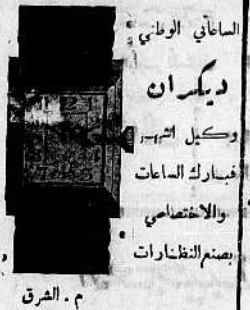 الساعاتي الوطني
ديكران
وكيل اشهر
فبارك الساعات
والاختصاصي
بصنع النظارات
م . الشرق